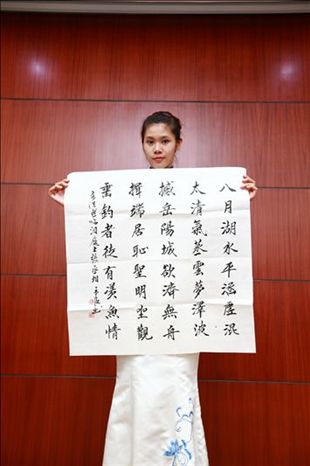 八月湖水平涵虛混
太清氣蒸雲夢澤波
撼岳陽城欲濟無舟
楫端居恥聖明坐觀
垂釣者徒有羨魚情
孟浩然臨洞庭上張丞相